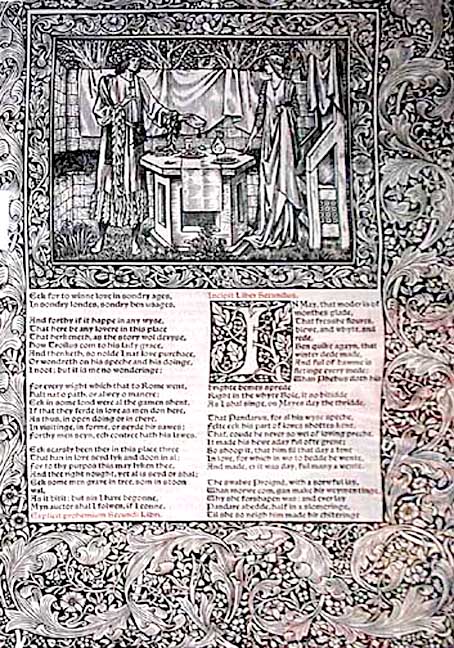 Eek for to winne love in sondry ages,
In sondry londes, sondry ben usages.
And forthy if it happe in any wyse,
That here be any lovere in this place
That herkneth, as the story wol devyse,
How Troilus com to his lady grace,
And thenketh, so nolde I nat love purchace,
Or wondreth on his speche and his doinge,
I noot; but it is me no wonderinge;
For every wight which that to Rome went,
Halt nat o path, or alwey o manere;
Eek in some lond were al the gamen shent,
If that they ferde in love as men don here,
As thus, in open doing or in chere,
In visitinge, in forme, or seyde hir sawes;
Forthy men seyn, ech contree hath his lawes.
Eek scarsly been ther in this place three
That han in love seyd lyk and doon in al;
For to thy purpos this may lyken thee,
And thee right nought, yet al is seyd or shal;
Eek som men grave in tree, som in stoon
wal,
As it bitit; but sin I have begonne,
Myn auctor shal I folwen, if I conne.
Explicit prohemium Secundi Libri.
Incipit Liber Secundus.
IN May, that moder is of
monthes glade,
That fresshe floures,
blewe, and whyte, and
rede,
Ben quike agayn, that
winter dede made,
And ful of bawme is
fletinge every mede;
Whan Phebus doth his
brighte bemes sprede
Right in the whyte Bole, it so bitidde
As I shal singe, on Mayes day the thridde,
That Pandarus, for al his wyse speche,
Felte eek his part of loves shottes kene,
That, coude he never so wel of loving preche,
It made his hewe aday ful ofte grene;
So shoop it, that him fil that day a tene
In love, for which in wo to bedde he wente,
And made, er it was day, ful many a wente.
The swalwe Proigne, with a sorwful lay,
Whan morwe com, gan make hir weymentinge,
Why she forshapen was; and ever lay
Pandare abedde, half in a slomeringe,
Til she so neigh him made hir chiteringe